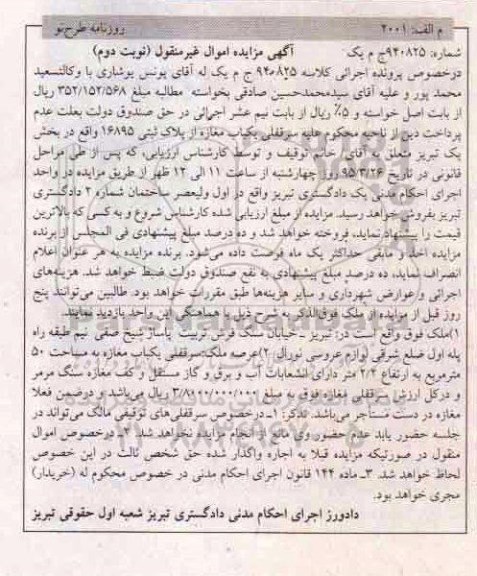 م الف: ۲۰۰۱ روزنامه طرح نو
شماره: ۹۴۰۸۲۵ج م یک آگهی مزایده اموال غیرمنقول (نوبت دوم)
درخصوص پرونده اجرائی کلاسه ۹۴۰۸۲۵ ج م یک له آقای یونس یوشاری با وکالتسعید
محمد پور و علیه آقای سیدمحمدحسین صادقی بخواسته مطالبه مبلغ ۳۵۲/۱۵۲/۵۶۸ ریال
از بابت اصل خواسته و ۵٪ ریال از بابت نیم عشر اجرائی در حق صندوق دولت بعلت عدم
پرداخت دین از ناحیه محکوم علیه سرقفلی یکباب مغازه از پلاک ثبتی ۱۶۸۹۵ واقع در بخش
یک تبریز متعلق به آقای/ خانم توقیف و توسط کارشناس ارزیابی، که پس از طی مراحل
قانونی در تاریخ ۹۵/۳/۲۶ روز چهارشنبه از ساعت ۱۱ الی ۱۲ ظهر از طریق مزایده در واحد
اجرای احکام مدنی یک دادگستری تبریز واقع در اول ولیعصر ساختمان شماره ۲ دادگستری
تبریز بفروش خواهد رسید. مزایده از مبلغ ارزیابی شده کارشناس شروع و به کسی که بالاترین
قیمت را پیشنهاد نماید، فروخته خواهد شد و ده درصد مبلغ پیشنهادی فی المجلس از برنده
مزایده اخذ و مابقی حداکثر یک ماه فرصت داده می‌شود. برنده مزایده به هر عنوان اعلام
انصراف نماید، ده درصد مبلغ پیشنهادی به نفع صندوق دولت ضبط خواهد شد. هزینه‌های
اجرائی و عوارض شهرداری و سایر هزینه‌ها طبق مقررات خواهد بود. طالبین می‌توانند پنج
روز قبل از مزایده از ملک فوق‌الذکر به شرح ذیل با هماهنگی این واحد بازدید نمایند.
۱)ملک فوق واقع است در: تبریز ـ خیابان سنگ فرش تربیت پاساژ شیخ صفی نیم طبقه راه
پله اول ضلع شرقی لوازم عروسی نورال ۲)عرصه ملک:سرقفلی یکباب مغازه به مساحت ۵۰
مترمربع به ارتفاع ۲/۲ متر دارای انشعابات آب و برق و گاز مستقل و کف مغازه سنگ مرمر
و درکل ارزش سرقفلی مغازه فوق به مبلغ ۳/۸۰۰/۰۰۰/۰۰۰ ریال می‌باشد و درضمن فعلا
مغازه در دست مستأجر می‌باشد. تذکر: ۱ـ درخصوص سرقفلی‌های توقیفی مالک می‌تواند در
جلسه حضور یابد عدم حضور وی مانع از انجام مزایده نخواهد شد. ۲ـ درخصوص اموال
منقول در صورتیکه مزایده قبلا به اجاره واگذار شده حق شخص ثالث در این خصوص
لحاظ خواهد شد. ۳ـ ماده ۱۴۴ قانون اجرای احکام مدنی در خصوص محکوم له (خریدار)
مجری خواهد بود.
دادورز اجرای احکام مدنی دادگستری تبریز شعبه اول حقوقی تبریز